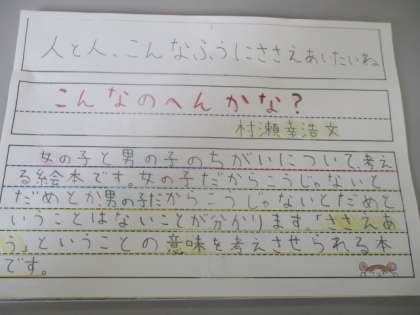 人と人、こんなふうにささえあいたいね
こんなのへんかな?
村瀬幸浩文
女の子と男の子のちがいについて、考え
る絵本です。女の子だからこうじゃないと
だめとか男の子だからこうじゃないとだめと
いうことはないことが分かります。「ささえあ
う」ということの意味を考えさせられる本
です。